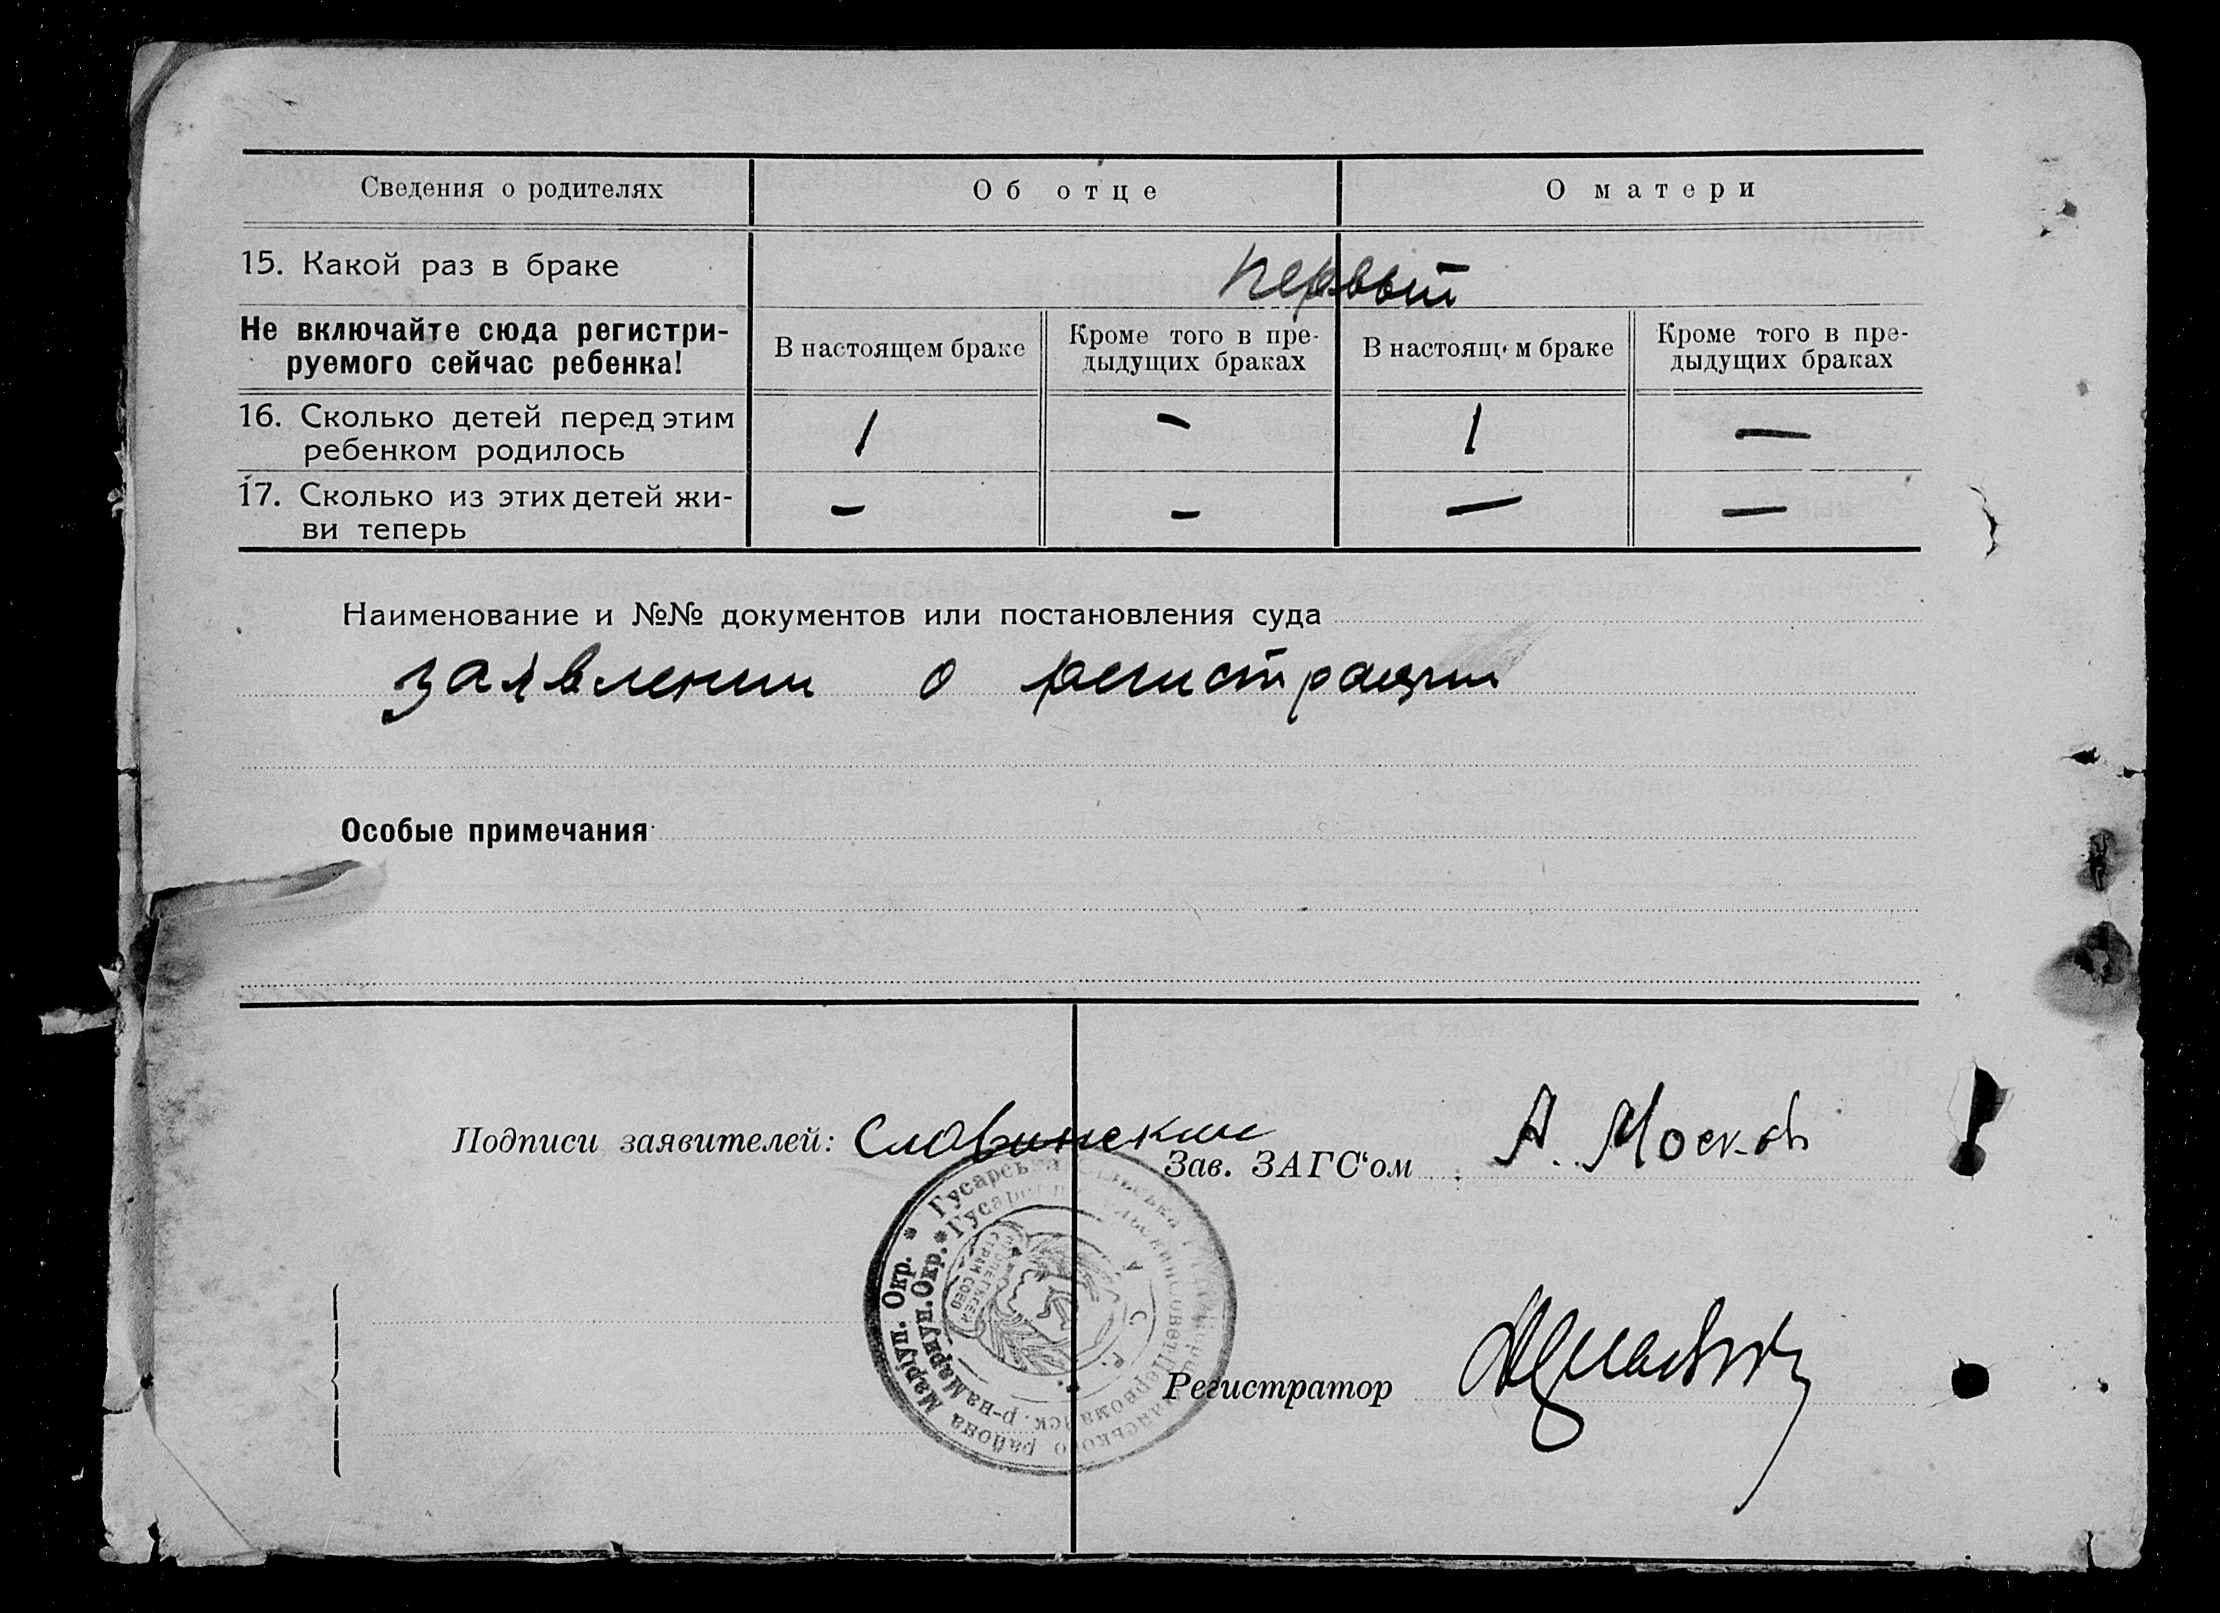 Сведения о родителях
Об отце
О матери
15. Какой раз в браке
первый
Не включайте сюда регистри-
руемого сейчас ребенка!
В настоящем браке
Кроме того в пре-
дыдущих браках
В настоящ м браке
Кроме того в пре-
дыдущих браках
16. Сколько детей перед этим
ребенком родилось
1 - 1 —
17. Сколько из этих детей жи-
ви теперь
- - — —
Наименование и №№ документов или постановления суда
заявлении о регистрации
Особые примечания
Подписи заявителей: Славинский
Зав. ЗАГС‘ом А. Москов
Регистратор
* Гусарська района Маріуп. Окр.
* Гусар р-на Мариуп. Окр.